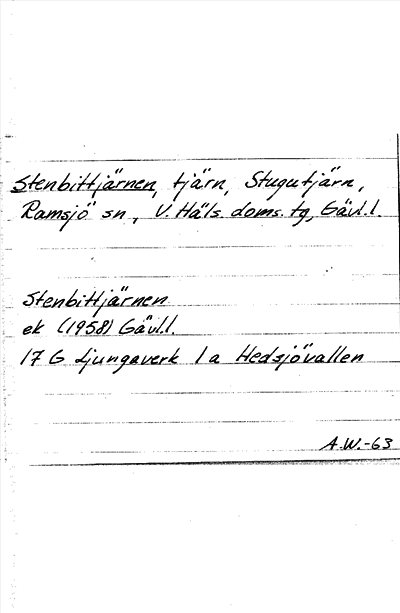 Stenbittjärnen, tjärn, Stugutjärn,
Ramsjö sn, V. Häls. doms. tg, Gävl.l.
Stenbittjärnen
ek (1958) Gävl.l.
17 G Ljungaverk 1a Hedsjövallen
A.W.-63